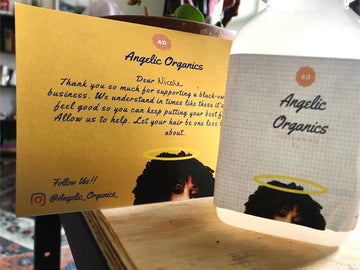 AO
Angelic Organics
Dear Nicole
Thank you so much for supporting a black-
business. We understand in times like these it's
feel good so you can keep putting your best f
Allow us to help. Let your hair be one less t
about.
Follow Us!!
@Angelic_Organics_
AO
Angelic
Organics